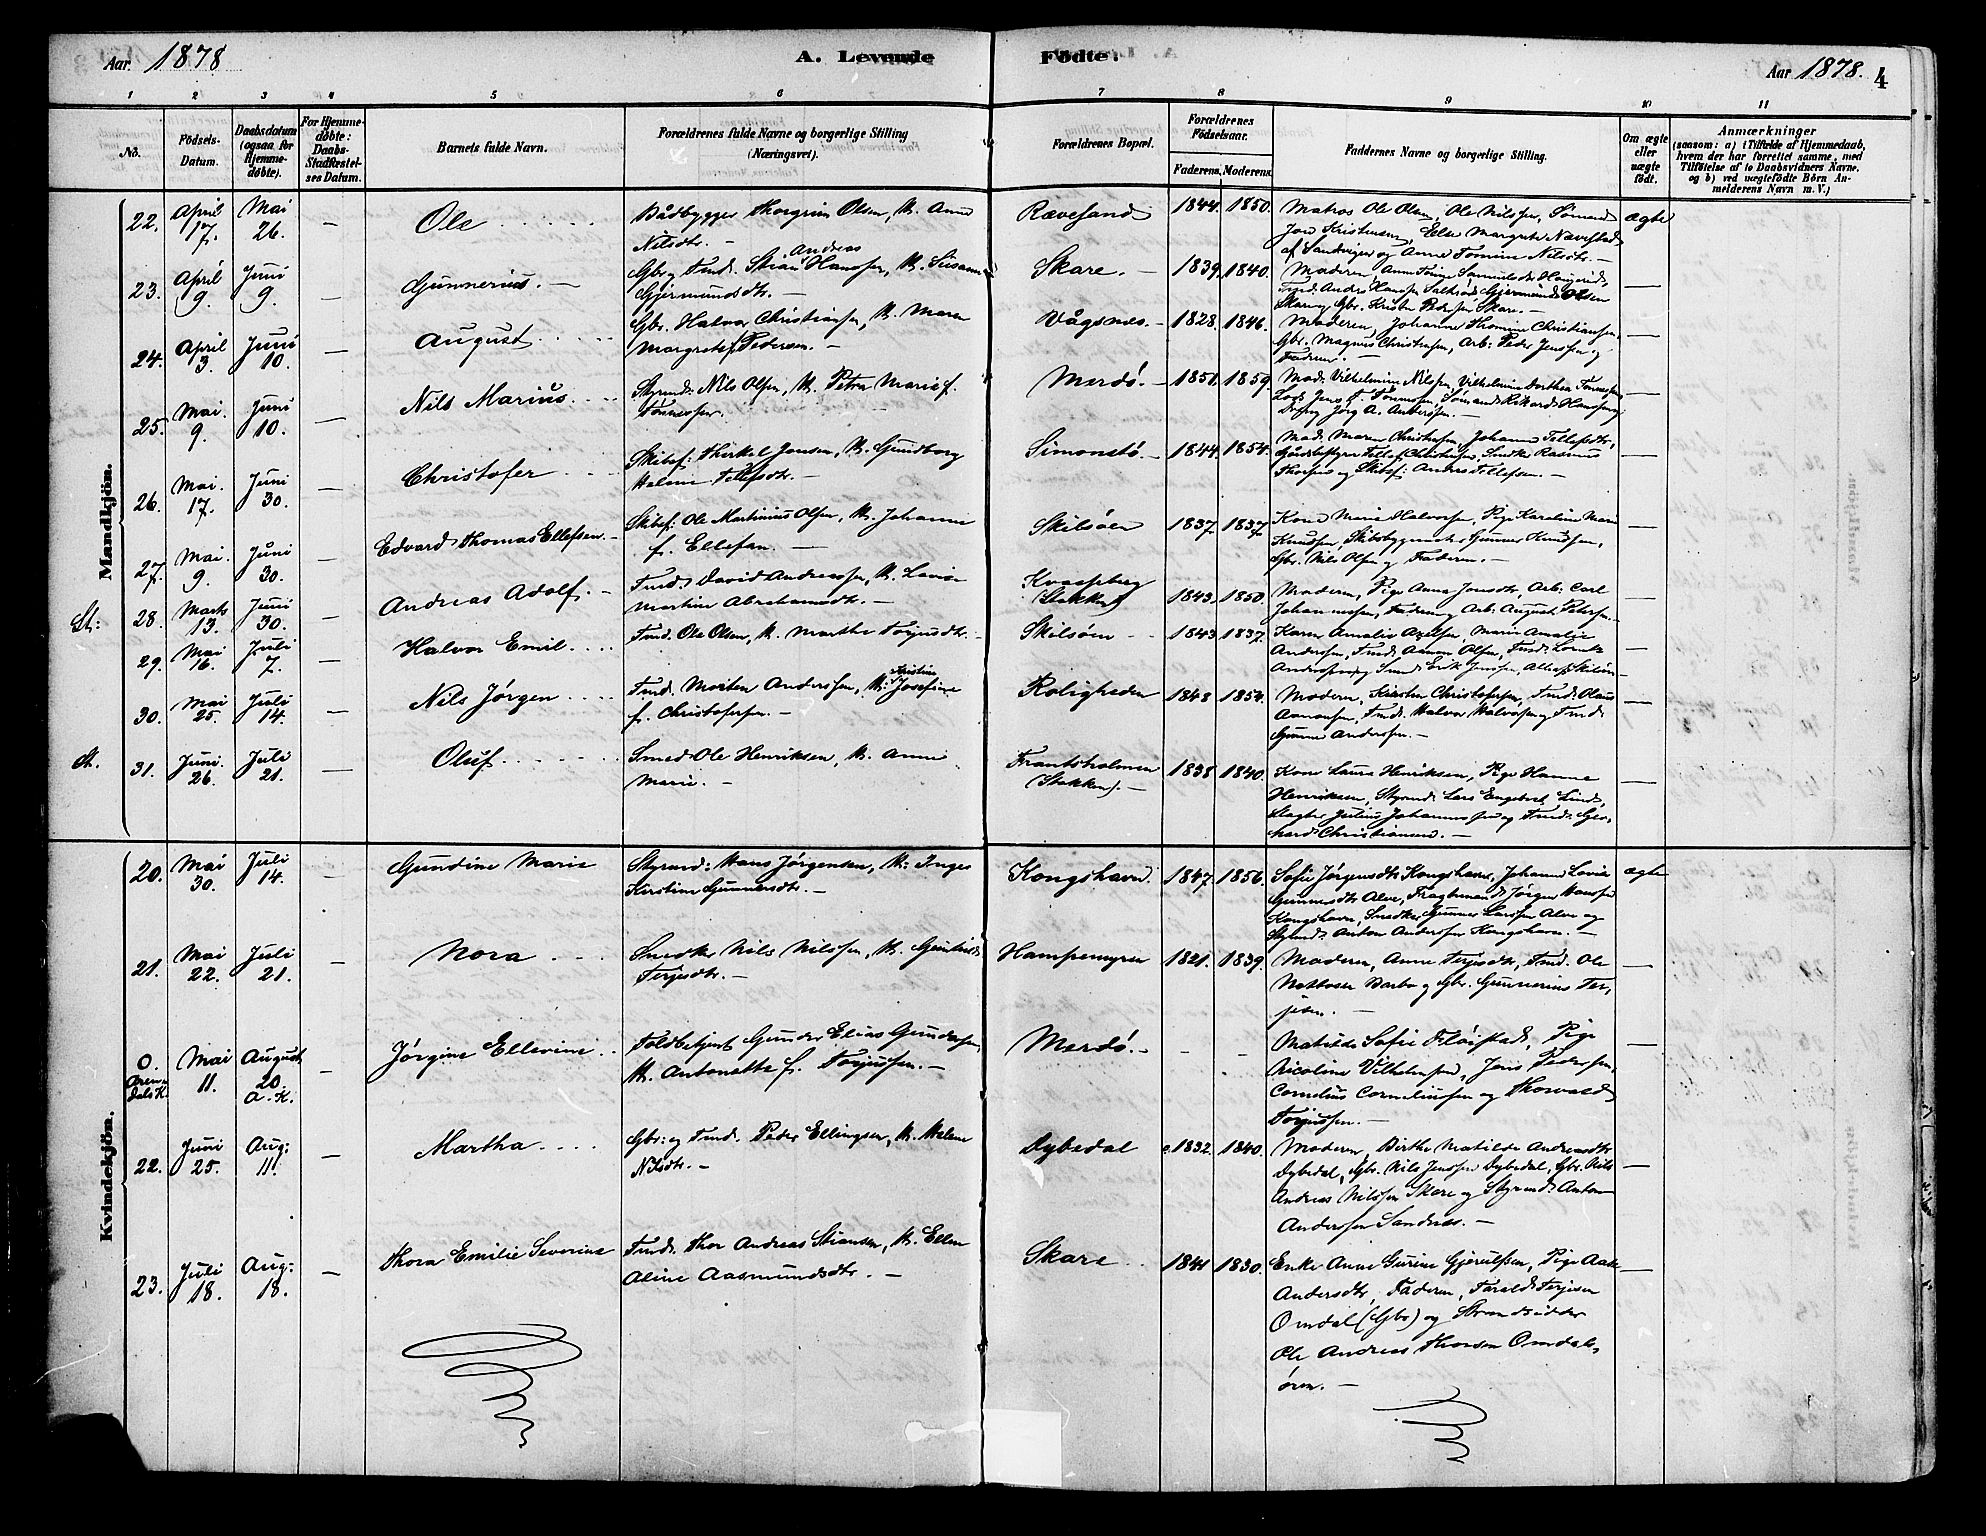 Aar. 1878
A. Levende
Födte.
Aar 1878. 4
1 2 3 4 5 6 7 8 9 10 11
No.
Födsels-
Datum.
Daabsdatum
(ogsaa for
Hjemme-
døbte).
For Hjemme-
døbte:
Daabs-
Stadfæstel-
ses Datum.
Barnets fulde Navn.
Forældrenes fulde Navne og borgerlige Stilling
(Næringsvei).
Forældrenes Bopæl.
Forældrenes
Födselsaar.
Faderens. Moderens.
Faddernes Navne og borgerlige Stilling.
Om ægte
eller
uægte
födt.
Anmærkninger
(saasom: a) i Tilfælde af Hjemmedaab,
hvem der har forrettet samme, med
Tilföielse af to Daabsvidners Navne.
og b) ved uægtefödte Börn An-
melderens Navn m. V.)
Mandkjön.
22. April 17. Mai 26. — Ole
Bådbygger Thorgrim Olsen, H. Anne
Nilsdtr. —
Rævesand 1844. 1850.
Matros Ole Olsen, Ole Nilssen, Sömand
Jens Kristensen, Else Margrete Nævestad
af Sandvigen og Anne Tomine Nilsdtr. —
ægte
23. April 9. Juni 9. — Gunnerius. —
Gbr. og Tmd. Stian Andreas Hanssen, H. Susanne
Gjermundsdtr.
Skare. — 1839. 1840.
Moderen, Anne Samuelsdtr
Tmd. Andr. Hanssen Saltröd, Gjermund Olsen
Skare og Gbr. Kristen Pedersen Skare. —
24. April 3. Juni 10. — August
Gbr. Halvor Christiansen, H. Maren
Margrete f. Pedersen. —
Vågsnes. — 1828. 1846.
Moderen, Johanne Thomine Christiansen,
Gbr. Magnus Christensen, Arb: Peder Jenssen og
Faderen. —
25. Mai. 9. Juni 10. — Nils Marius.
Styrmd: Nils Olsen, H. Petra Marie f.
Tönnessen. —
Merdö. — 1851. 1859.
Mad. Vilhelmine Nilssen, Vilhelmine Dorthea Tönnessen,
Lods Jens T. Tönnessen, Sömand Rikard Hanssen og
Jörg A. Anderssen. —
26. Mai. 17. Juni 30. — Christofer
Skibsf: Therkel Jensen, H. Gundborg
Helene Tellefsdtr. —
Simonstö. — 1844. 1854.
Mad. Maren Christensen, Johanne Tellefsdtr,
Gårdsbestyrer Tellef Christensen, Rasmus
og Skibsf: Anders Tellefsen. —
27. Mai. 9. Juni 30. — Edvard Thomas Ellefsen. —
Skibsf: Ole Martinius Olsen, H. Johanne
f. Ellefsen. —
Skilsöen 1837. 1837.
Kone Marie Halvorsen, Pige Karoline Marie
Knudsen, Skibsbygmester Gunner Knudsen,
Gbr. Nils Olsen og Faderen. —
St: 28. Marts 13. Juni 30. — Andreas Adolf. —
Tmd. David Andreassen, H. Lovise
Martine Abrahamsdtr. —
(Stokken) 1843. 1850.
Moderen, Pige Anna Jensdtr, Arb: Carl
Johannessen, Faderen og Arb: August Petersen. —
29. Mai 16. Juli 7. — Halvor Emil.
Tmd. Ole Olsen, H. Marthe Torjusdtr. —
Skilsöen — 1843 1837.
Karen Amalie Axelsen, Marie Amalie
Anderssen, Tmd. Aanon Olsen, Tmd. Lorentz
Anderssen og Smed Erik Jenssen, Alle p. Skilsöen —
30. Mai 25. Juli 14. — Nils Jörgen
Tmd. Morten Anderssen, H. Kristine Josefine
f. Christofersen. —
Roligheden 1848 1854.
Moderen, Kirsten Christofersen, Tmd. Olaus
Aanonsen, Tmd. Halvor Halvorsen og Tmd.
Gunner Anderssen. —
St. 31. Juni. 26. Juli 21. — Oluf.
Smed Ole Henriksen, H. Anne
Marie. —
Frantsholmen
(Stokken). — 1838 1840.
Kone Laura Henriksen, Pige Hanne
Henriksen, Styrmd: Lars Engebret Lind,
Slagter Julius Johannessen og Tmd. Ger-
hard Christiansen. —
Kvindekjön.
20. Mai 30. Juli 14. — Gundine Marie
Styrmd: Hans Jörgensen, H. Inges
Kirstine Gunnersdtr. —
Kongshavn. 1847. 1856.
Sofie Jörgensdtr Kongshavn, Johanne Lovise
Gunnersdtr Alve, Fragtemand Jörgen Hanssen
Kongshavn, Snedker Gunner Larssen Alve og
Styrmd: Anton Anderssen Kongshavn. —
ægte
21. Mai 22. Juli 21. — Nora
Snedker Nils Nilssen, H. Gunhild
Terjesdtr. —
Hampemyren 1821. 1839.
Moderen, Anne Terjesdtr, Tmd. Ole
Barbo og Gbr. Gunnerius Ter-
jesen. —
0. Aren-
dals K. Mai 11. August 20. A. K. — Jörgine Ellevine
Toldbetjent Gunder Elias Gundersen,
H. Antonette f. Torjussen. —
Merdö. —
Matilde Sofie Flöistad, Pige
Nicoline Vilhelmsen, Jens Pedersen,
Cornelius Corneliussen og Thorvald
Torjussen. —
22. Juni 25. Aug: 11. — Martha
Gbr: og Tmd. Peder Ellingsen, H. Helene
Nilsdtr. —
Dybedal c.1832. 1840.
Moderen, Birthe Matilde Andreasdtr
Dybedal, Gbr. Nils Jenssen Dybedal, Gbr. Nils
Andreas Nilssen Skare og Styrmd: Anton
Anderssen Sandnæs. —
23. Juli 18. Aug: 18. — Thora Emilie Severine
Tmd. Thor Andreas Stiansen, H. Ellen
Aline Aasmundsdtr. —
Skare 1841 1830.
Enke Anne Gurine Gjerulfsen, Pige Aase
Andersdtr, Faderen, Tarald Terjesen
Omdal (Gbr) og Strandsidder
Ole Andreas Thorsen Omdals-
ören. —